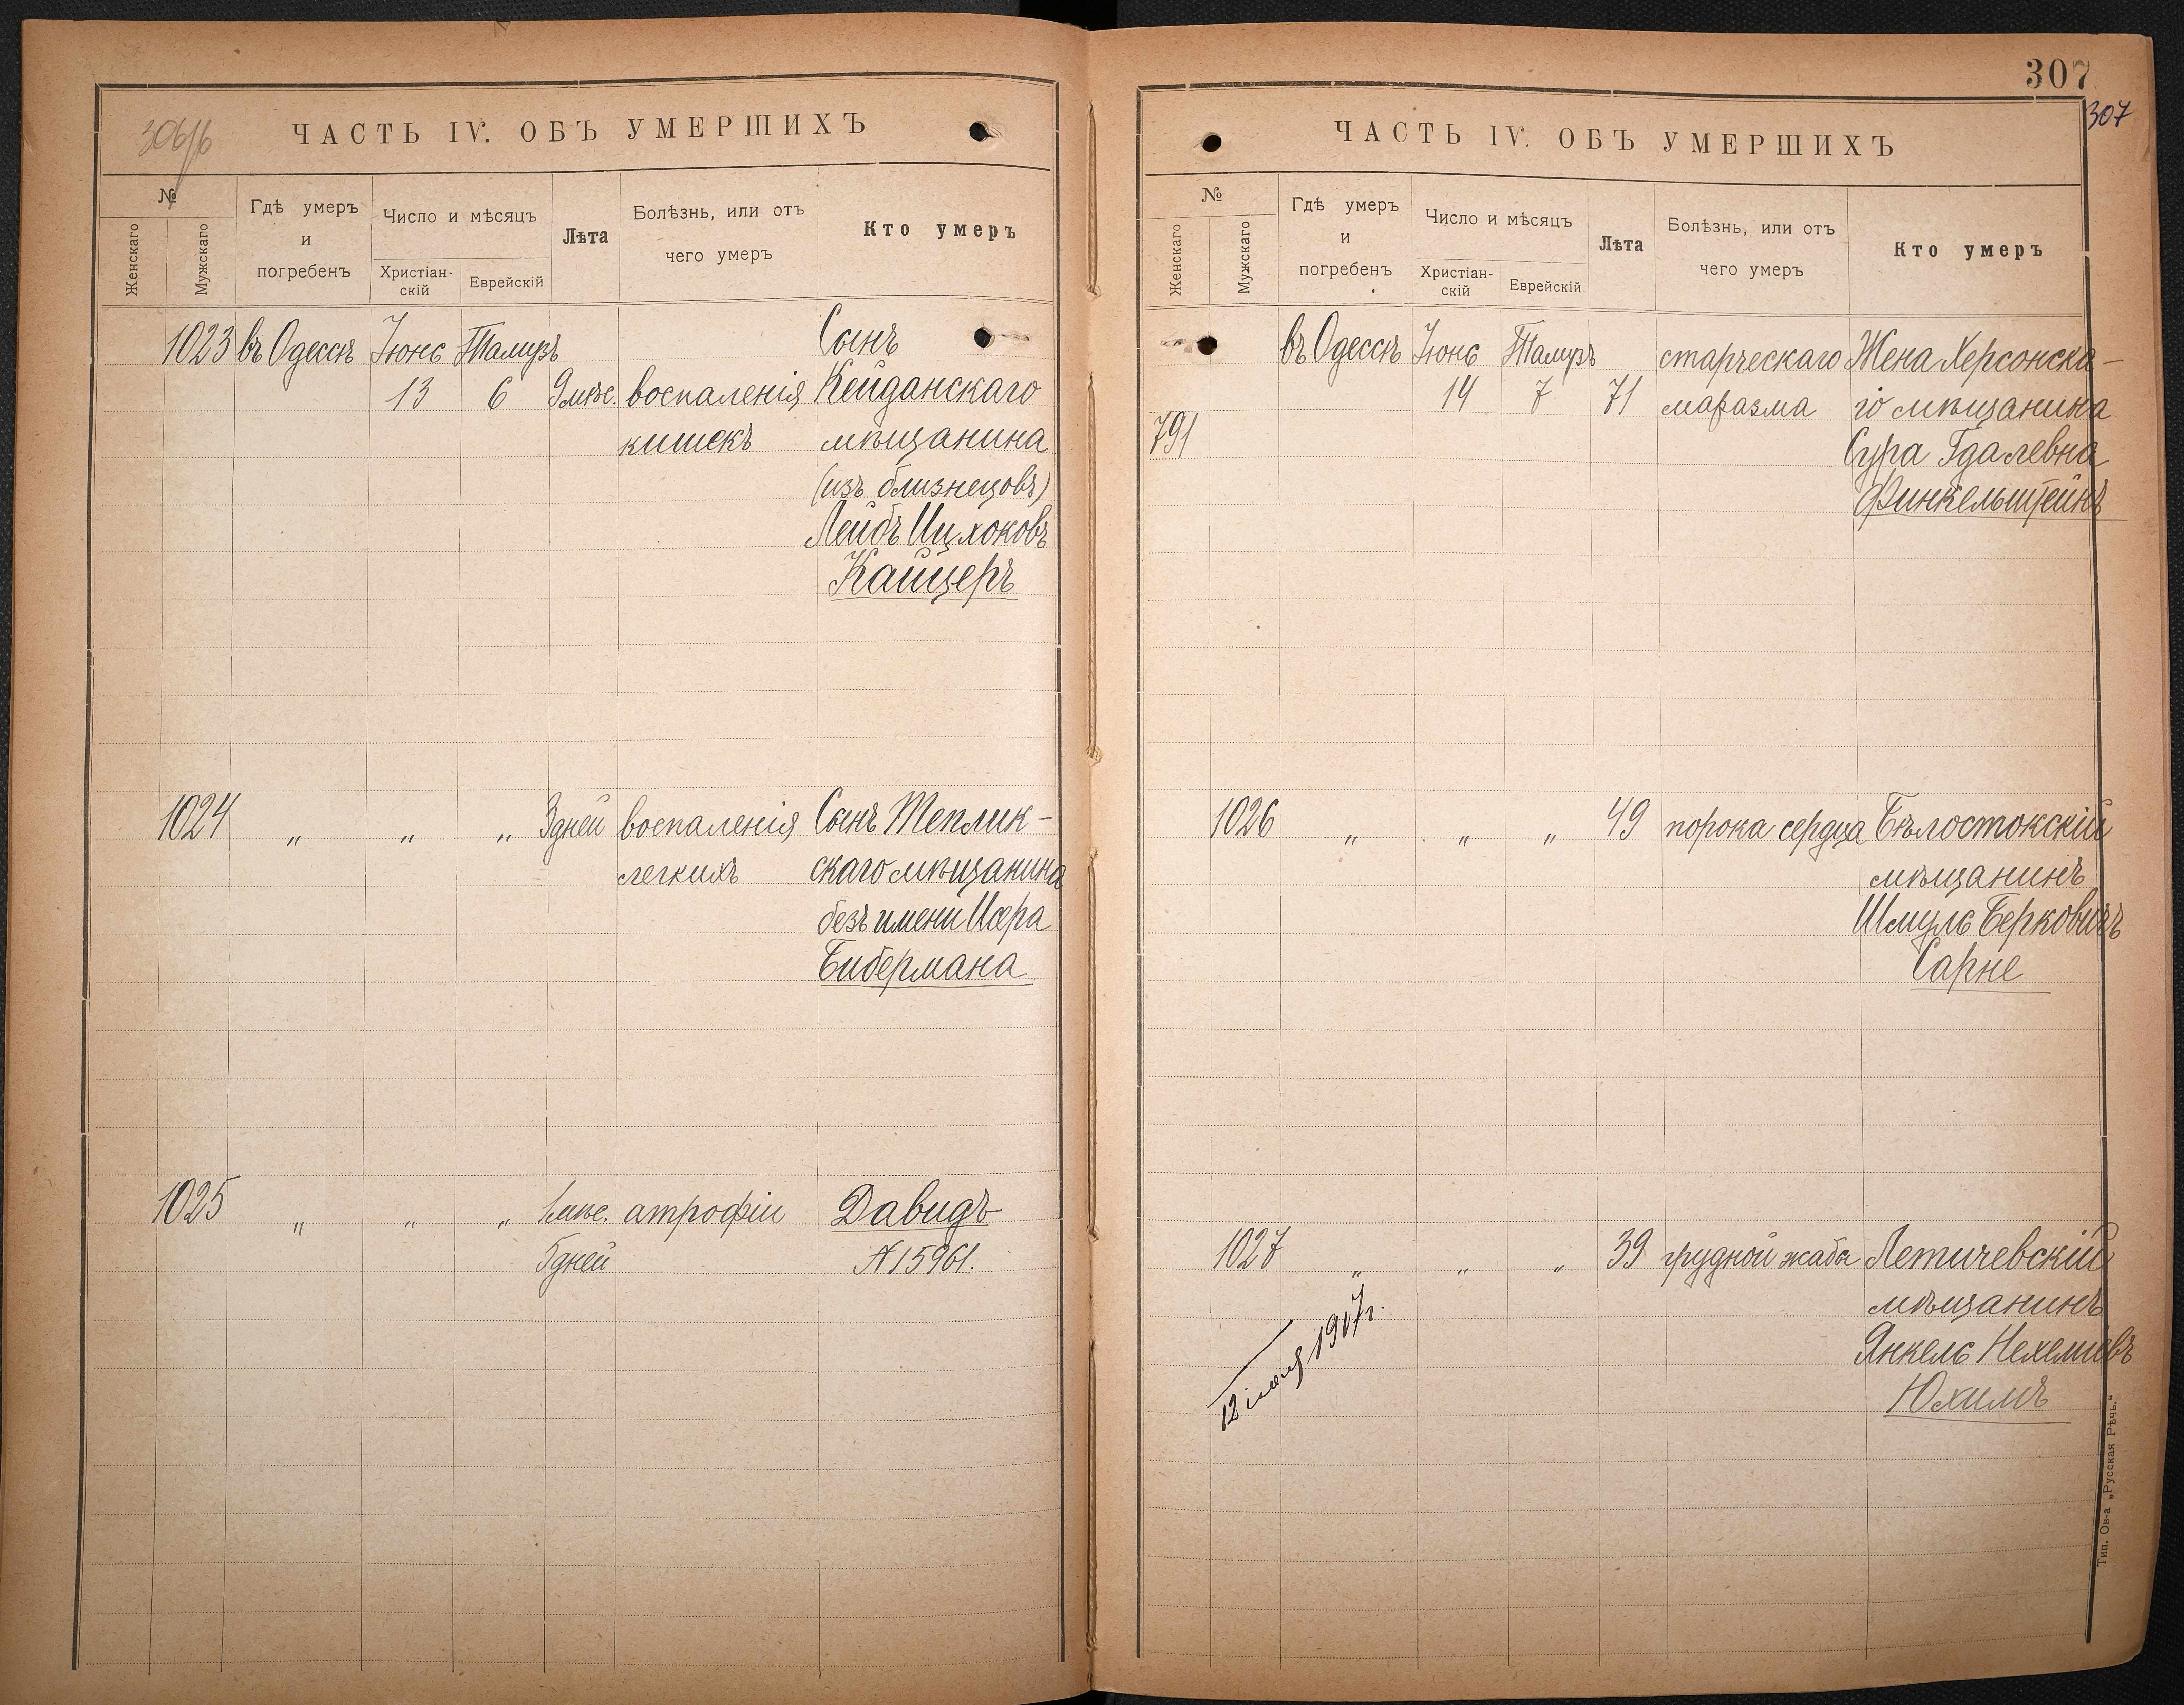 306/б
ЧАСТЬ IV. ОБЪ УМЕРШИХЪ
№
Женскаго
Мужскаго
Гдѣ умеръ
и
погребенъ
Число и мѣсяцъ
Христіан-
скій
Еврейскій
Лѣта
Болѣзнь, или отъ
чего умеръ
Кто умеръ
1023 въ Одессѣ Іюнь Тамузъ Сынъ
13 6 9 мѣс. воспаленія Кейданскаго
кишекъ мѣщанина
(изъ близнецовъ)
Лейбъ Ицхоковъ
Кайцеръ
1024 " " " 3 дней воспаленія Сынъ Теплик-
легкихъ скаго мѣщанина
безъ имени Исера
Бибермана
1025 " " " 1 мѣс. атрофіи Давидъ
5 дней № 15961.
307
307
ЧАСТЬ IV. ОБЪ УМЕРШИХЪ
№
Женскаго
Мужскаго
Гдѣ умеръ
и
погребенъ
Число и мѣсяцъ
Христіан-
скій
Еврейскій
Лѣта
Болѣзнь, или отъ
чего умеръ
Кто умеръ
въ Одессѣ Іюнь Тамузъ старческаго Жена Херсонска-
14 7 71 маразма го мѣщанина
791 Сура Гдалевна
Финкельштейнъ
1026 " " " 49 порока сердца Бѣлостокскій
мѣщанинъ
Шмуль Берковичъ
Сарне
1027 " " " 39 грудной жабы Летичевскій
мѣщанинъ
Янкель Нехеміевъ
Юхимъ
12 1917 г.
Тип. Ов-а „Русская Рѣчь."